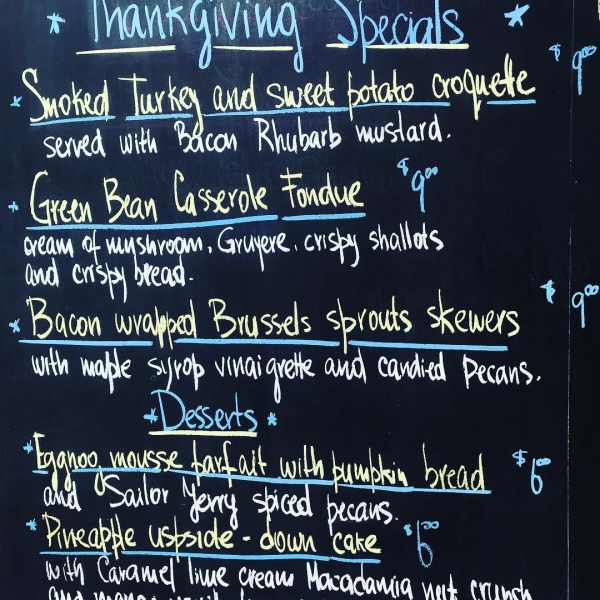 * Thankgiving Specials *
* Smoked Turkey and sweet potato croquette $9.00
served with Bacon Rhubarb mustard.
* Green Bean Casserole Fondue $9.00
cream of myshroom, Gruyere, crispy shallots
and crispy bread.
* Bacon wrapped Brussels sprouts skewers $9.00
with maple syrop vinaigrette and candied pecans.
* Desserts *
* Eggnog mousse parfait with pumpkin bread $6.00
and Sailor Jerry spiced pecans.
* Pineapple uspside-down cake $6.00
with Caramel lime cream Macadamia nut crunch
and mango